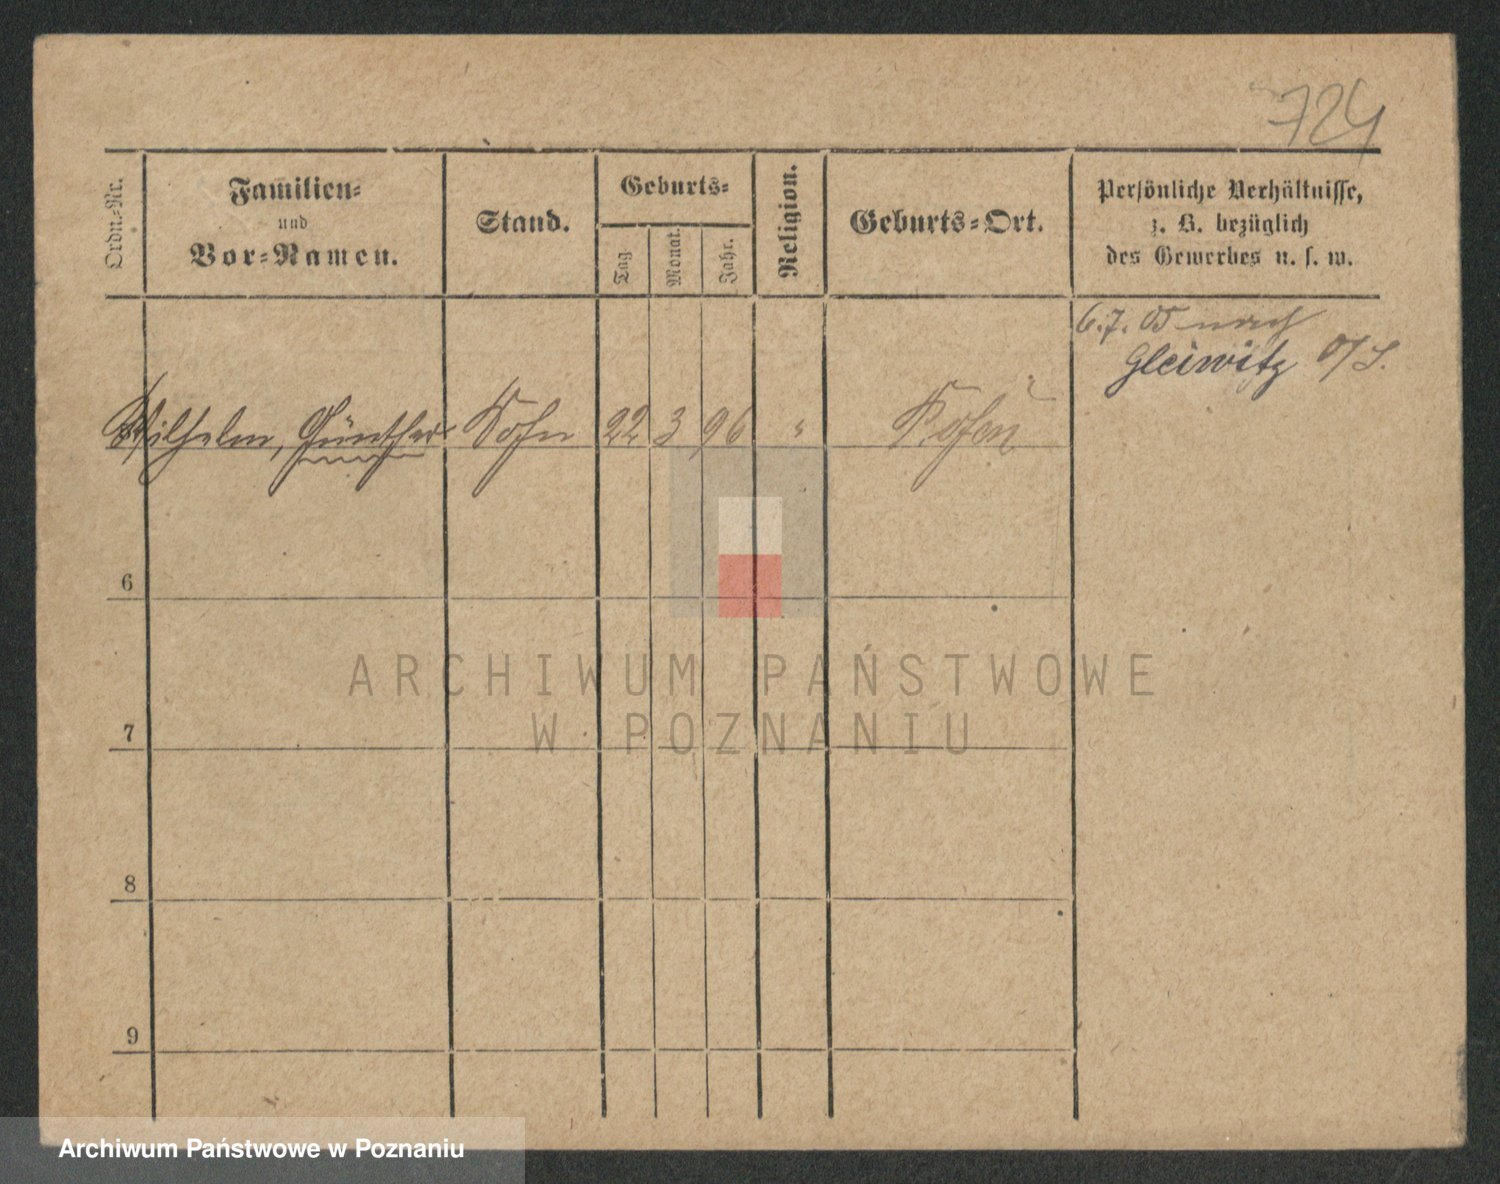 724
Ordn.-Nr.
Familien-
und
Vor-Namen.
Stand.
Geburts-
Tag
Monat.
Jahr.
Religion.
Geburts-Ort.
Persönliche Verhältnisse,
z. B. bezüglich
des Gewerbes u. s. w.
6.7.05 nach
Gleiwitz O/S.
Wilhelm, Günther Sohn 22 3 96 "
6
7
8
9
ARCHIWUM PAŃSTWOWE
W POZNANIU
Archiwum Państwowe w Poznaniu